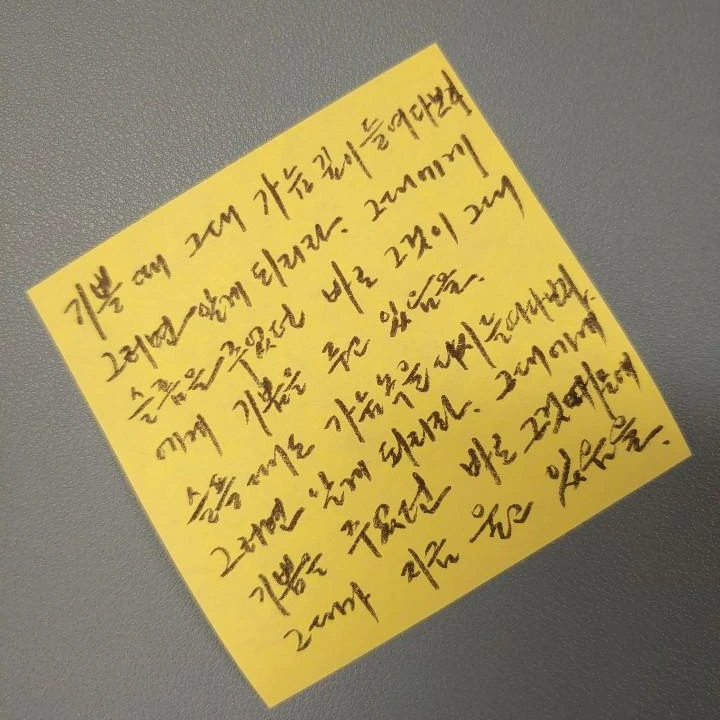 기쁠 때 그대 가슴 깊이 들여다보라
그러면 알게 되리라. 그대에게
슬픔을 주었던 바로 그것이 그대
에게 기쁨을 주고 있음을.
슬플 때도 가슴속을 다시 들여다보라.
그러면 알게 되리라. 그대에게
기쁨을 주었던 바로 그것 때문에
그대가 지금 울고 있음을.